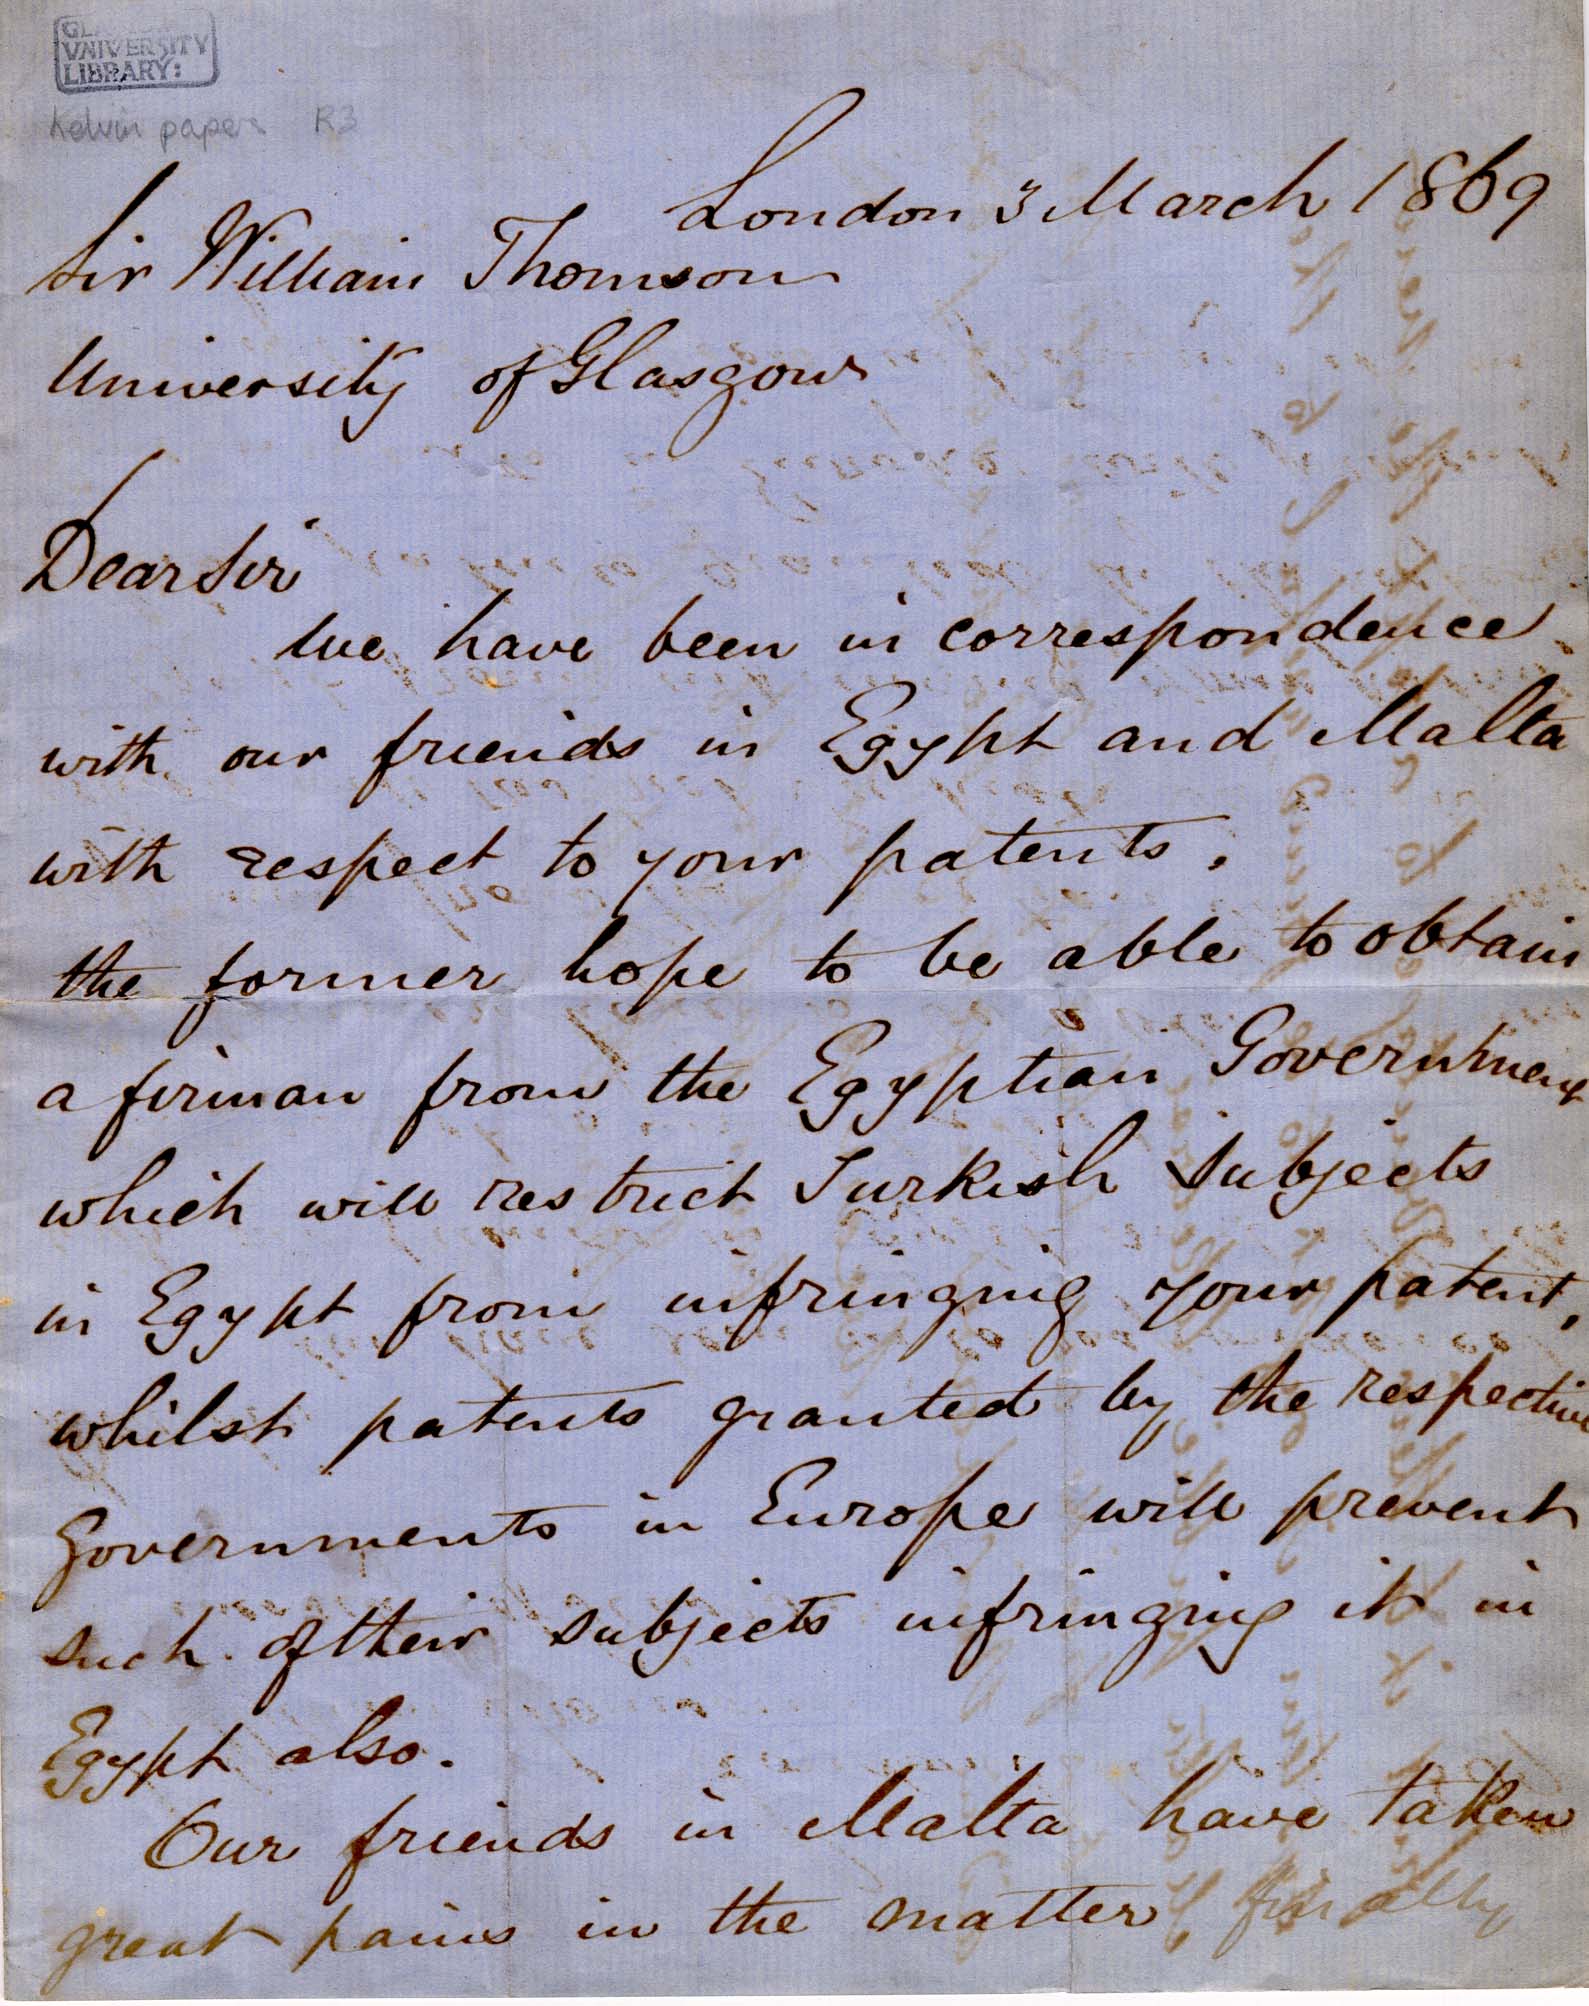 GL
VNIVERSITY
LIBRARY:
Kelvin papers R3
London 3 March 1869
Sir William Thomson
University of Glasgow
Dear Sir
We have been in correspondence
with our friends in Egypt and Malta
with respect to your patents.
the former hope to be able to obtain
a firman from the Egyptian Government
which will restrict Turkish subjects
in Egypt from infringing your patent,
whilst patents granted by the respective
Governments in Europe will prevent
such of their subjects infringing it in
Egypt also.
Our friends in Malta have taken
great pains in the matter, finally